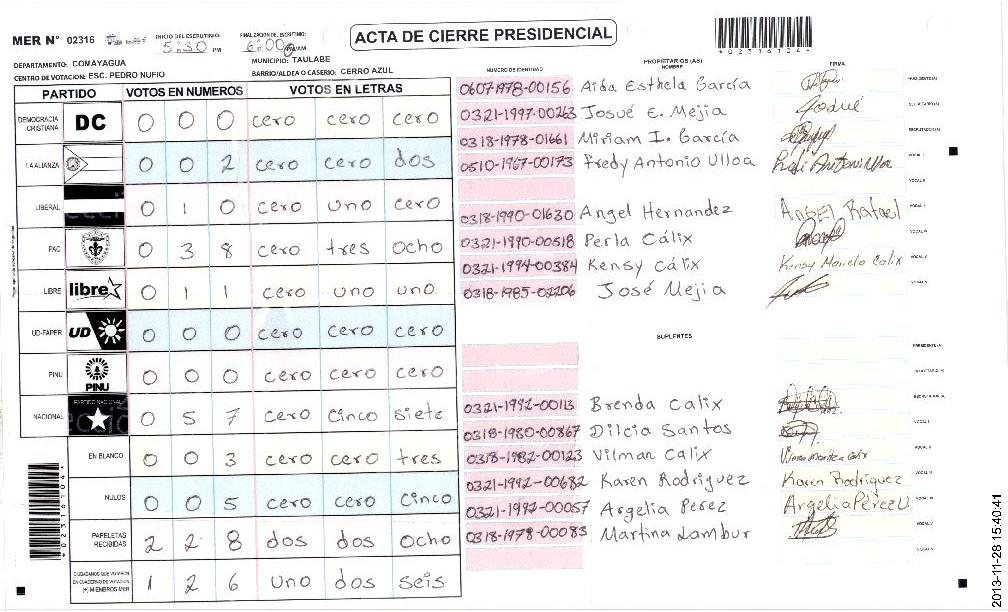 MER Nº 02316 INICIO DEL ESCRUTINIO: 5:30 PM FINALIZACION DEL ESCRUTINIO: 6:00 PM/AM ACTA DE CIERRE PRESIDENCIAL
*02316104*
DEPARTAMENTO: COMAYAGUA MUNICIPIO: TAULABE
CENTRO DE VOTACION: ESC. PEDRO NUFIO BARRIO/ALDEA O CASERIO: CERRO AZUL
PARTIDO VOTOS EN NUMEROS VOTOS EN LETRAS
DEMOCRACIA CRISTIANA DC 0 0 0 cero cero cero
LA ALIANZA 0 0 2 cero cero dos
LIBERAL 0 1 0 cero uno cero
PAC 0 3 8 cero tres ocho
LIBRE libre 0 1 1 cero uno uno
UD-FAPER UD 0 0 0 cero cero cero
PINU PINU 0 0 0 cero cero cero
NACIONAL PARTIDO NACIONAL 0 5 7 cero cinco siete
EN BLANCO 0 0 3 cero cero tres
NULOS 0 0 5 cero cero cinco
PAPELETAS RECIBIDAS 2 2 8 dos dos ocho
CIUDADANOS QUE VOTARON EN CUADERNO DE VOTACION (+) MIEMBROS MER 1 2 6 uno dos seis
*02316104*
PROPIETARIOS (AS)
NUMERO DE IDENTIDAD NOMBRE FIRMA
0607-1978-00156 Aida Esthela García PRESIDENTE(A)
0321-1997-00263 Josué E. Mejia Josué SECRETARIO(A)
0318-1978-01661 Miriam I. García ESCRUTADOR(A)
0510-1967-00173 Fredy Antonio Ulloa VOCAL I
VOCAL II
0318-1990-01630 Angel Hernandez Angel Rafael
0321-1990-00518 Perla Cálix
0321-1994-00384 Kensy Cálix Kensy Mariela Calix
0318-1985-02206 José Mejia
SUPLENTES
PRESIDENTE(A)
SECRETARIO(A)
0321-1992-00113 Brenda Calix ESCRUTADOR(A)
0318-1980-00867 Dilcia Santos VOCAL I
0318-1982-00123 Vilman Calix
0321-1992-00682 Karen Rodriguez Karen Rodriguez
0321-1992-00057 Argelia Perez Argelia Pérez U
0318-1978-00083 Martina Lambur
2013-11-28 15:40:41